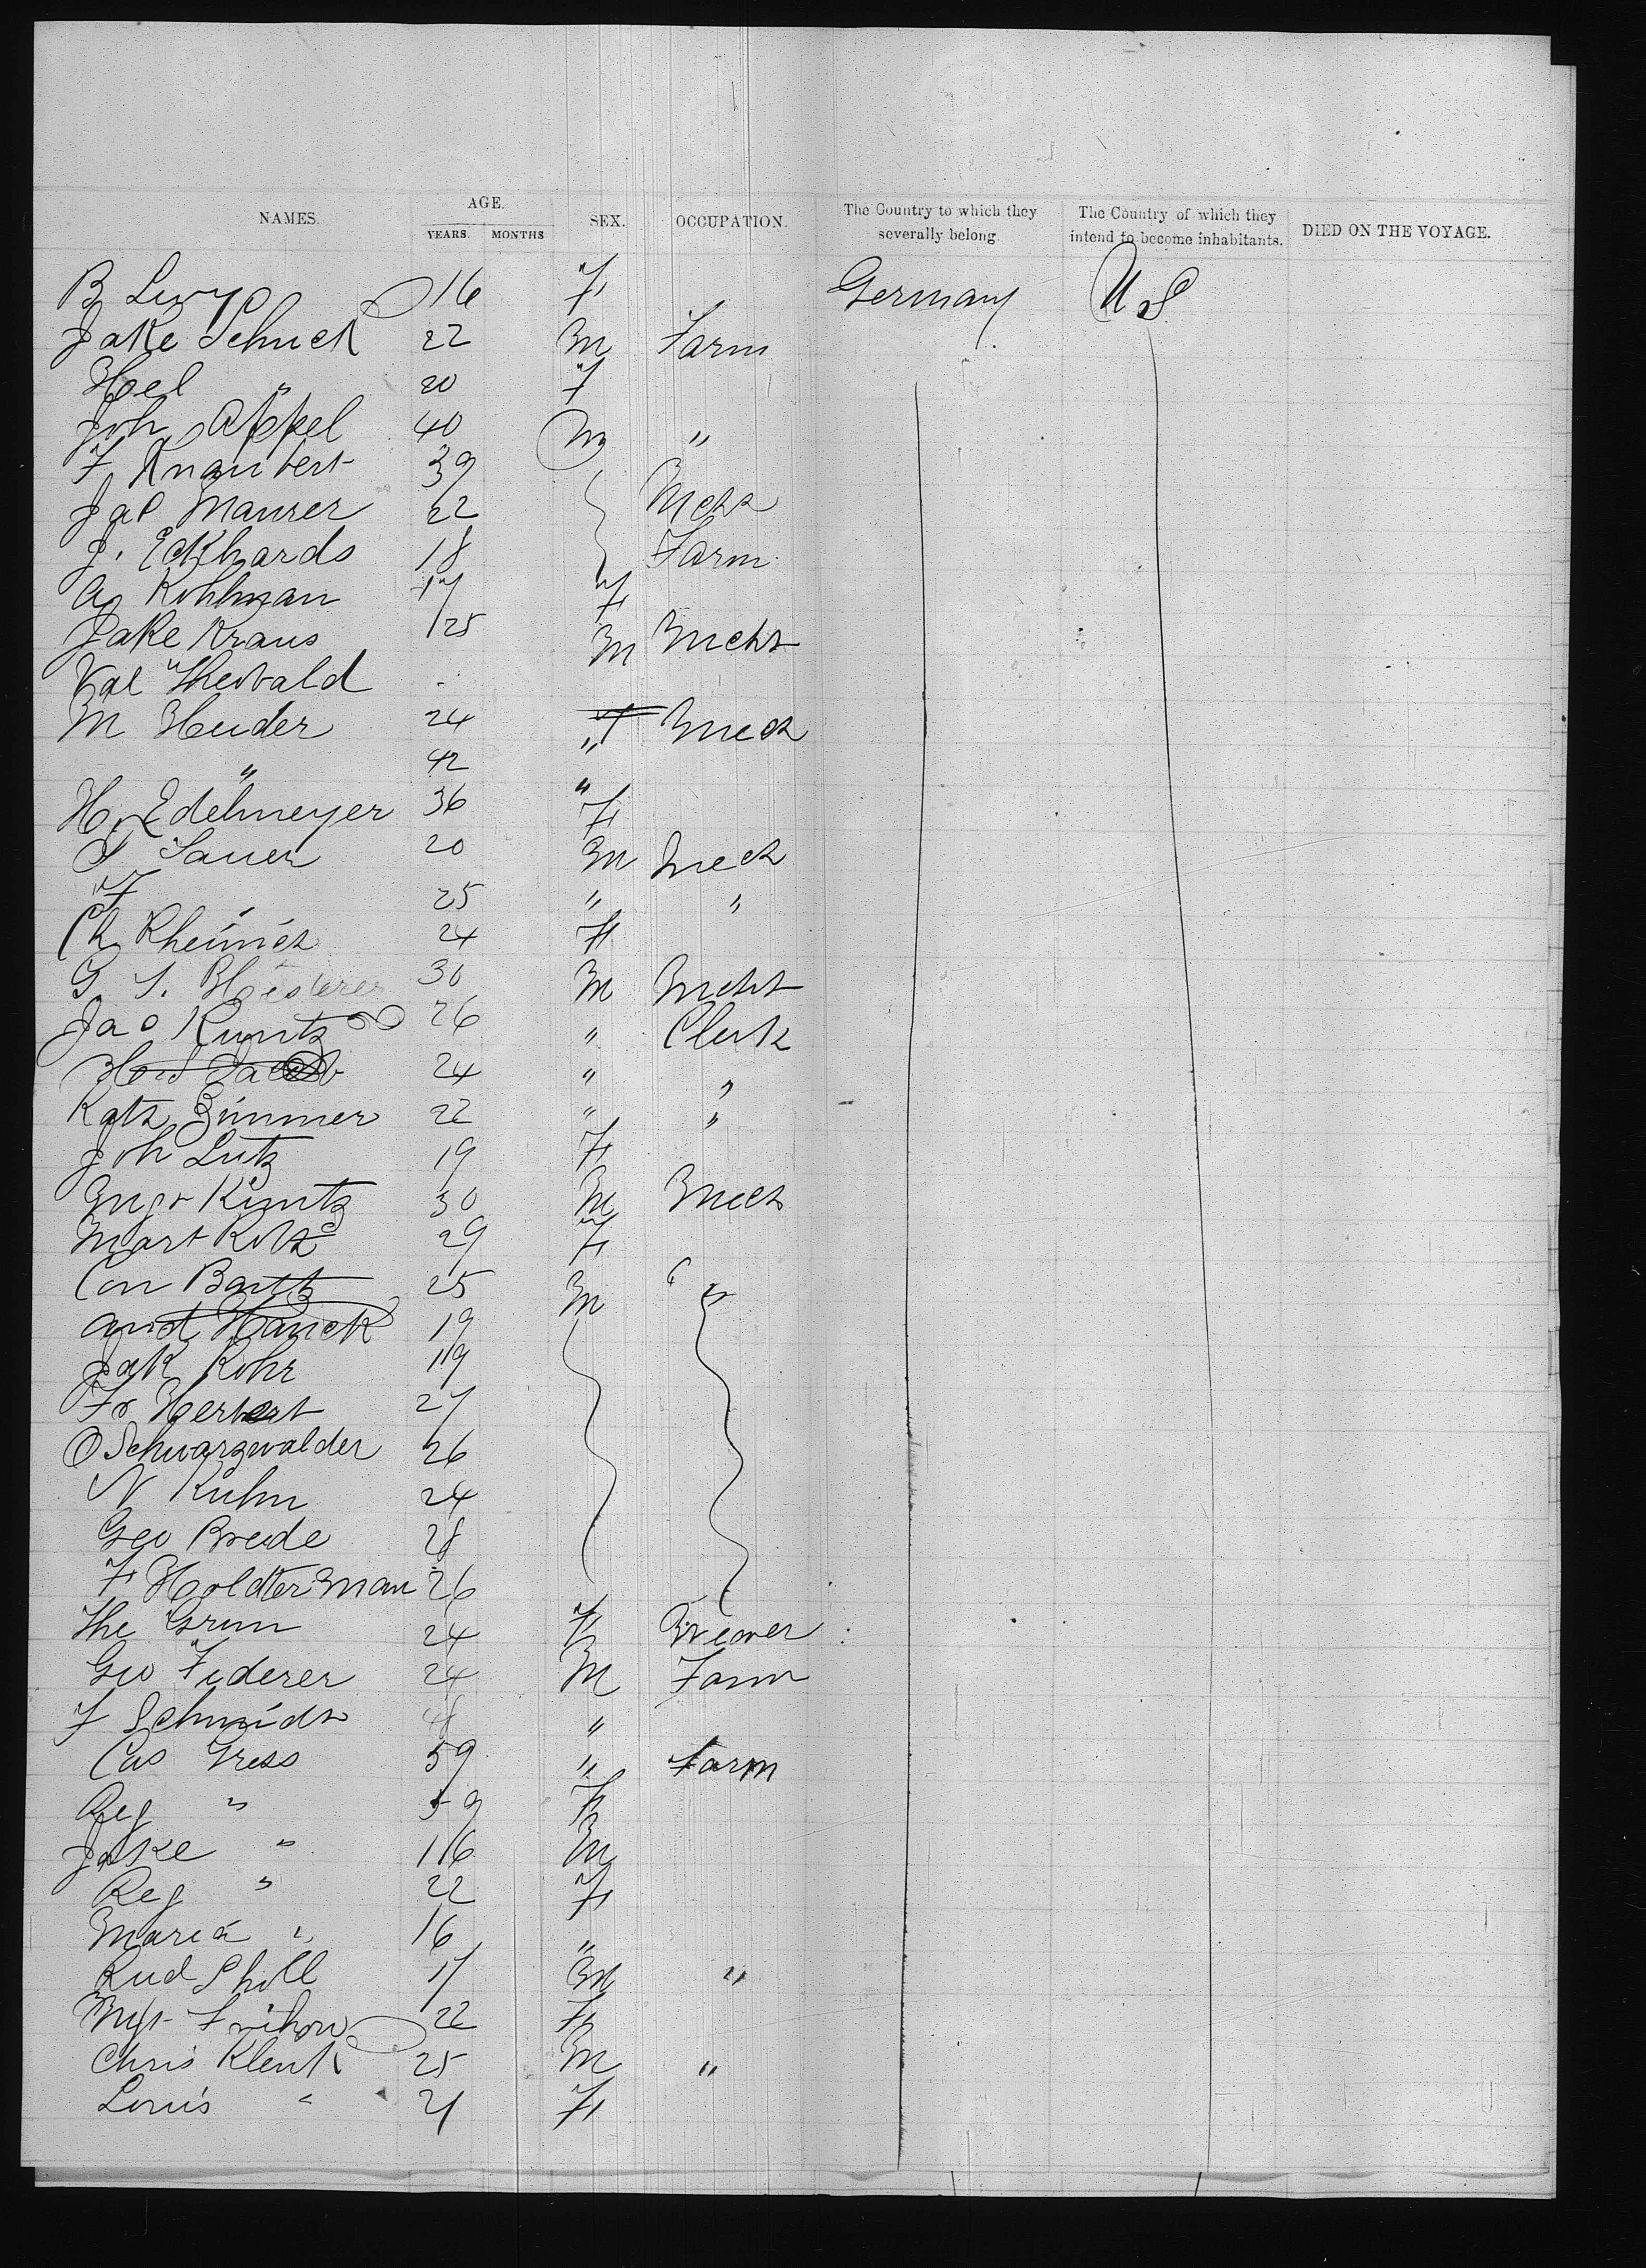 NAMES. AGE. YEARS. MONTHS SEX. OCCUPATION. The Country to which they severally belong. The Country of which they intend to become inhabitants. DIED ON THE VOYAGE.
B Levy 16 F Germany U S
Jake Schuck 22 M Farm
Hel " 20 F
Joh Appel 40 M "
F Knaubert 39
Jac Maurer 22 Mech
J. Eckhards 18 Farm
A Kohlman 17 F
Jake Kraus 25 M Mcht
Val Theobald
M Heider 24 " Mech
" 42 "
H. Edelmeyer 36 F
F Sauer 20 M Mech
F " 25 " "
Ch Rheinich 24 F
G S. 30 M Mcht
Jac Kuntz 26 " Clerk
24 " "
Kath Zimmer 22 " "
Joh Lutz 19 F
Mgr Kuntz 30 M Mech
Mart Kolb 29 F
Con Barth 25 M
Hauck 19
Jak Rohr 19
Fr Herbert 27
O Schwarzwalder 26
N Kuhn 24
Geo Brede 28
F Holdterman 26
The Grun 24 F Weaver
Geo Federer 24 M Farm
F Schmidt 48 "
Cas Gress 59 " Farm
Reg " 59 F
Jake " 16 M
Reg " 22 F
Maria " 16 "
Rud Sholl 17 M "
Mgr 22 F
Chris Klenk 25 M "
Louis " 21 F